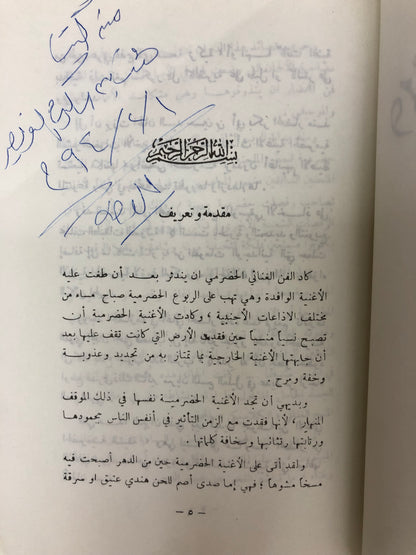 من كتب
١ / ٦ / ٩٤ م
بسم الله الرحمن الرحيم
مقدمة وتعريف
كاد الفن الغنائي الحضرمي ان يندثر بعد أن طغت عليه
الأغنية الوافدة وهي تهب على الربوع الحضرمية صباح مساء من
مختلف الاذاعات الأجنبية ؛ وكادت الأغنية الحضرمية أن
تصبح نسياً منسياً حين فقدت الأرض التي كانت تقف عليها بعد
أن جابهتها الأغنية الخارجية بما تمتاز به من تجديد وعذوبة
وخفة ومرح .
وبديهي أن تجد الأغنية الحضرمية نفسها في ذلك الموقف
المنهار ، لأنها فقدت مع الزمن التأثير في أنفس الناس بجمودها
ورتابتها ورثائها وسخافة كلماتها .
ولقد أتى على الأغنية الحضرمية حين من الدهر أصبحت فيه
مسخاً مشوهاً ؛ فهي إما صدى أصم للحن هندي عتيق او سرقة
— ٥ —